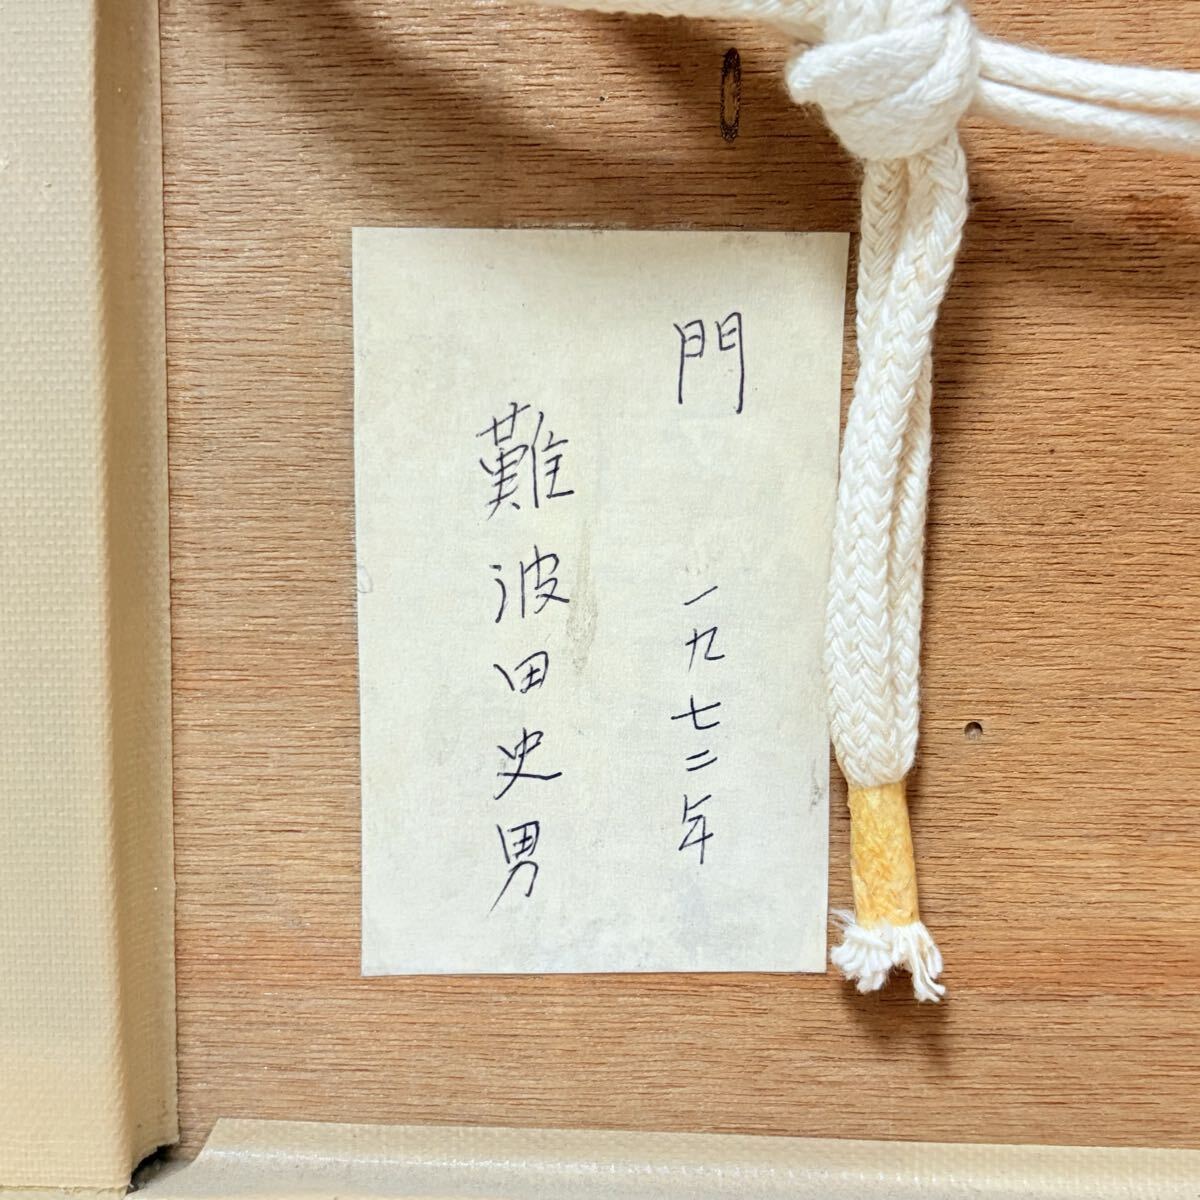 門　一九七二年
難波田史男